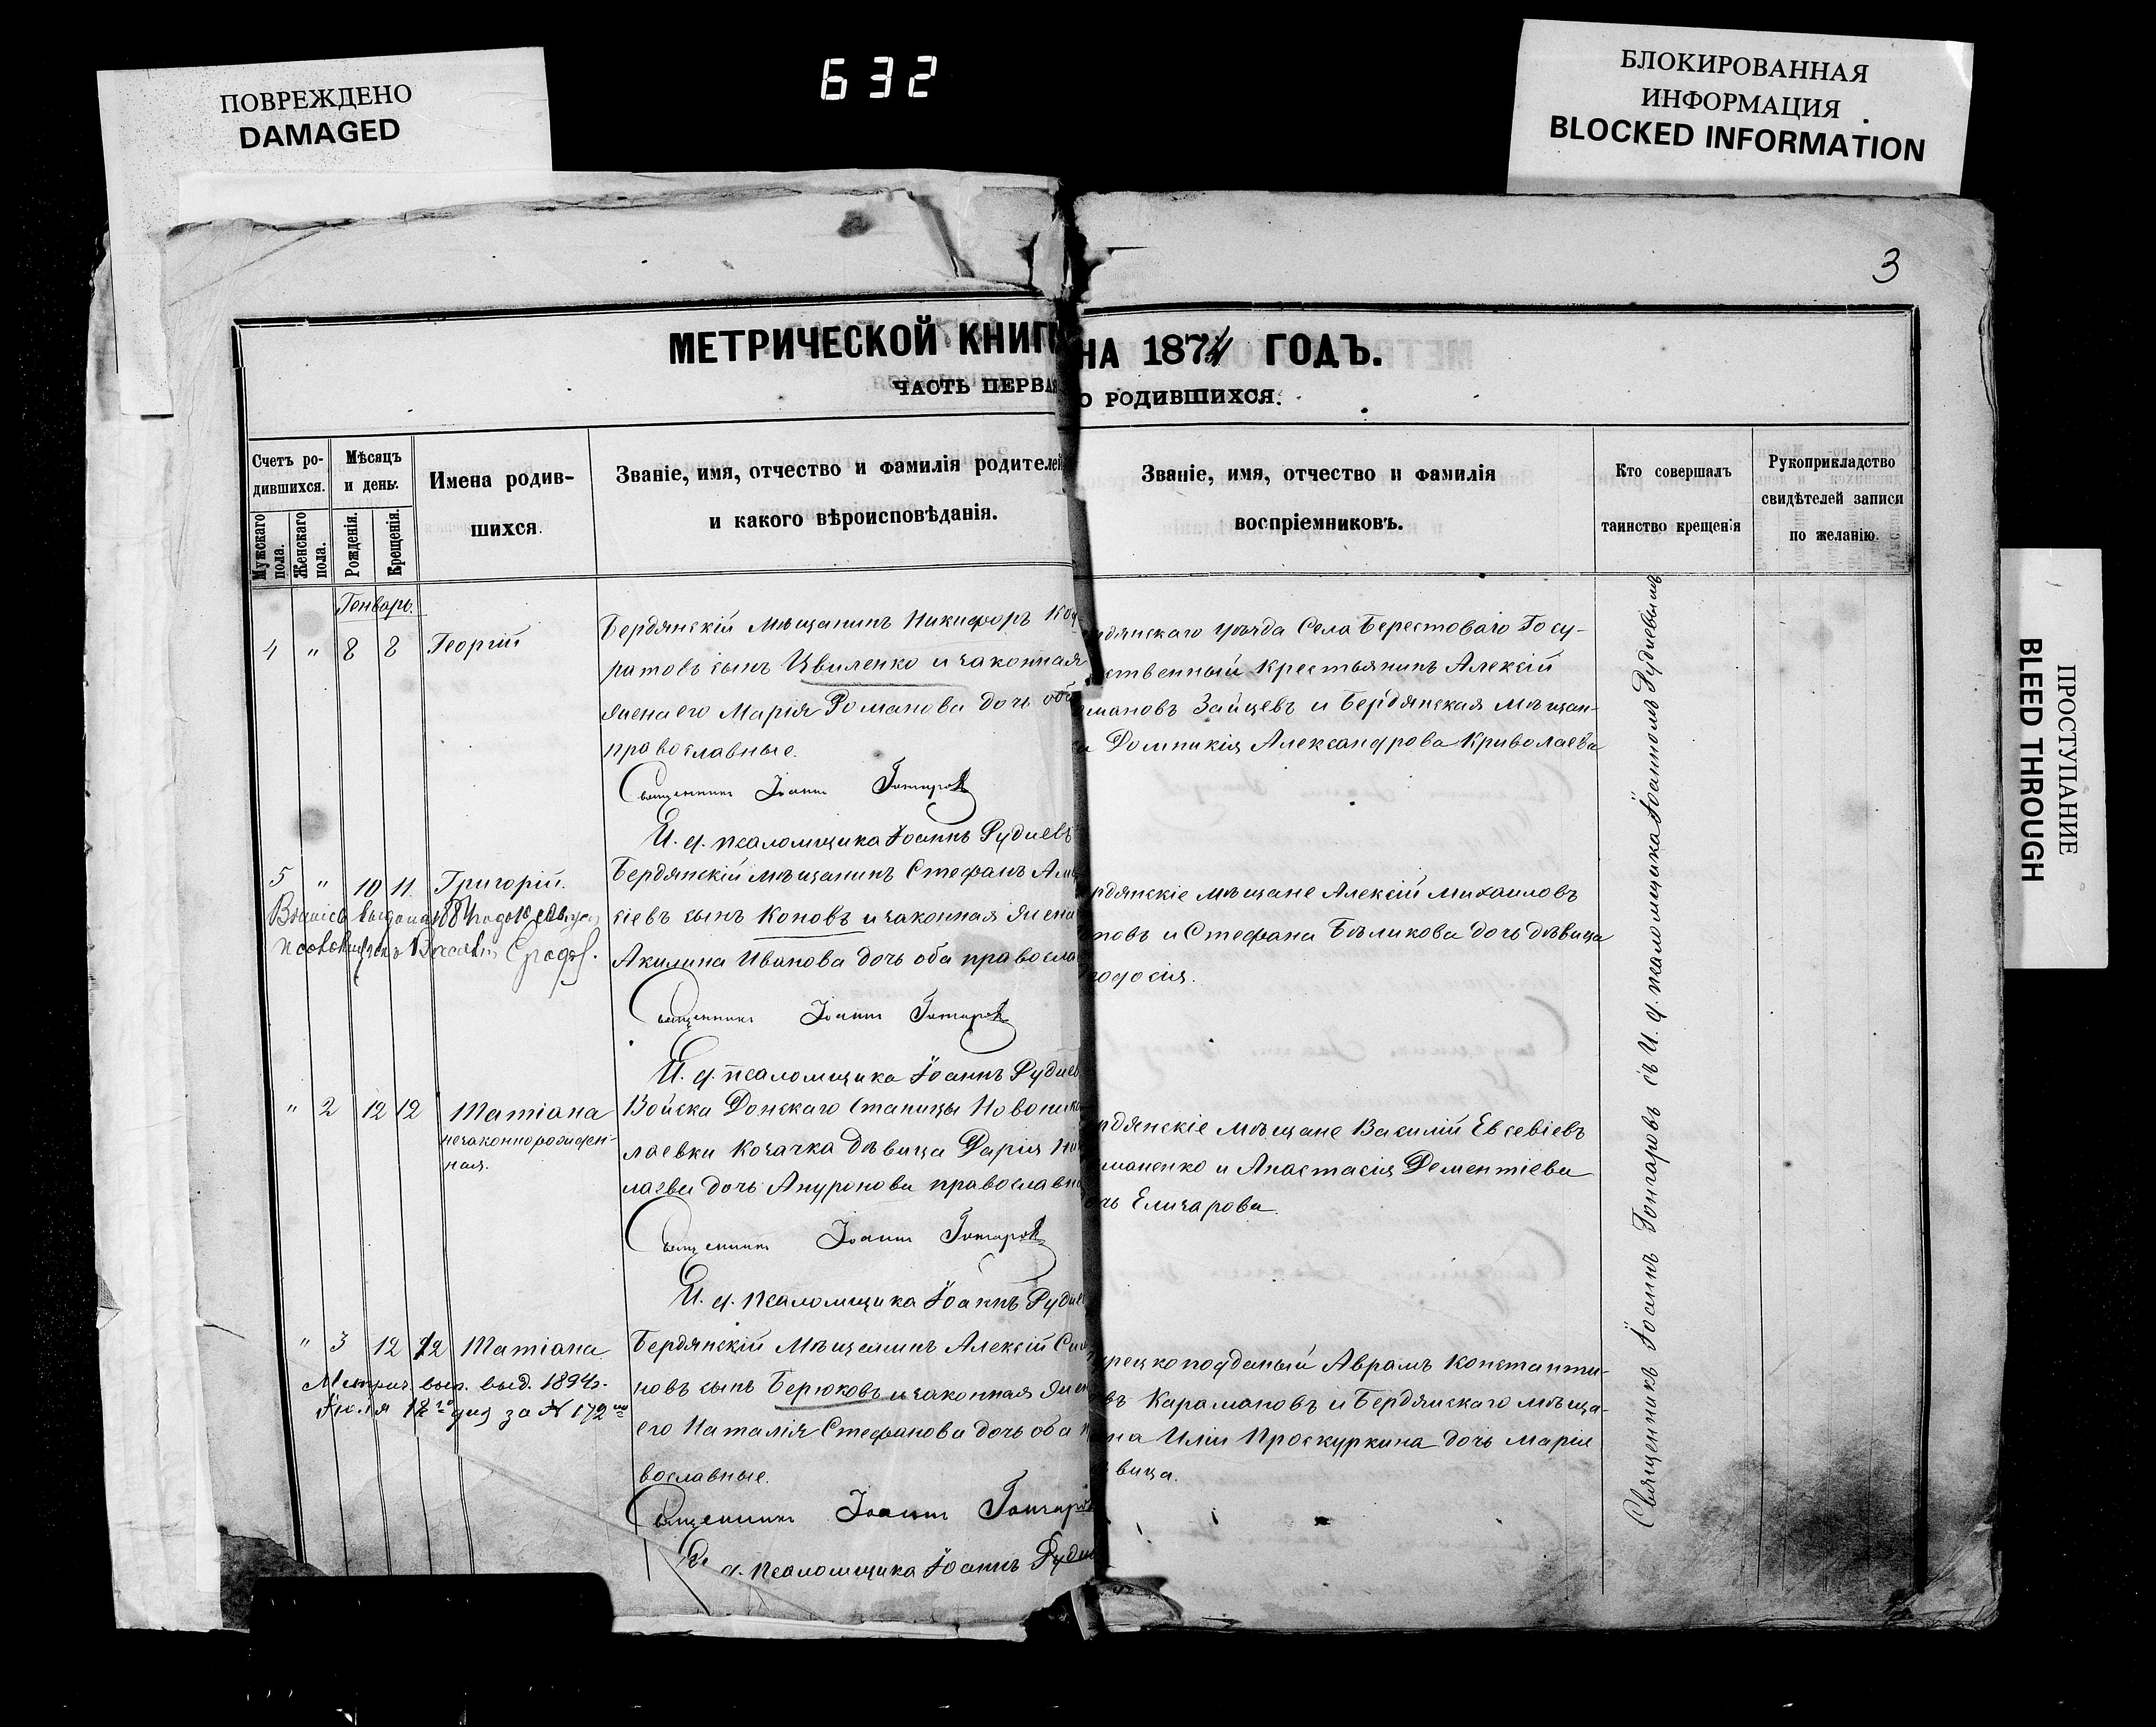 ПОВРЕЖДЕНО
DAMAGED
632
БЛОКИРОВАННАЯ
ИНФОРМАЦИЯ
BLOCKED INFORMATION
3
МЕТРИЧЕСКОЙ КНИГ НА 1874 ГОДЪ.
ЧАСТЬ ПЕРВАЯ О РОДИВШИХСЯ.
Счетъ ро-
дившихся.
Мужскаго пола.
Женскаго пола.
Мѣсяцъ
и день.
Рожденія.
Крещенія.
Имена родив-
шихся.
Званіе, имя, отчество и фамилія родителей
и какого вѣроисповѣданія.
Званіе, имя, отчество и фамилія
воспріемниковъ.
Кто совершалъ
таинство крещенія
Рукоприкладство
свидѣтелей записи
по желанію.
Генварь.
4 " 8 8 Георгій
Бердянскій Мѣщанинъ Никифоръ Ко
ратовъ сынъ Цвиленко и законная
жена его Марія Романова дочь оба
православные.
Священникъ Іоаннъ Гончаровъ
И. д. псаломщика Іоаннъ Рудиевъ
рдянскаго уѣзда Села Берестоваго Госу-
ственный крестьянинъ Алексій
мановъ Зайцевъ и Бердянская мѣщан-
а Домникія Александрова Криволаева
5 " 10 11 Григорій.
Бердянскій мѣщанинъ Стефанъ Але
сіевъ сынъ Коновъ и законная жена
Акилина Иванова дочь оба правосла
Священникъ Іоаннъ Гончаровъ
И. д. псаломщика Іоаннъ Рудиев
рдянскіе мѣщане Алексій Михаиловъ
новъ и Стефана Бѣликова дочь дѣвица
одосія.
" 2 12 12 Татіана
незаконнорожден-
ная.
Войска Донскаго Станицы Новонико
лаевки Козачка дѣвица Дарія Ни
лаева дочь Ануронова православн
Священникъ Іоаннъ Гончаровъ
И. д. псаломщика Іоаннъ Рудие
рдянскіе мѣщане Василій Евсевіевъ
маненко и Анастасія Дементіева
очь Елизарова.
" 3 12 12 Татіана
Метрич. вып. выд. 1894 г.
Іюля 12го дня за № 172
Бердянскій Мѣщанинъ Алексій Си
новъ сынъ Берюковъ и законная жен
его Наталія Стефанова дочь оба п
вославные.
Священникъ Іоаннъ Гончаров
И. д. псаломщика Іоаннъ Рудие
рецкоподданый Аврамъ Константи-
въ Карамановъ и Бердянскаго мѣща-
на Иліи Проскуркина дочь Марія
вица.
Священникъ Іоаннъ Гончаровъ съ И. д. псаломщика Іоанномъ Рудиевымъ
ПРОСТУПАНИЕ
BLEED THROUGH